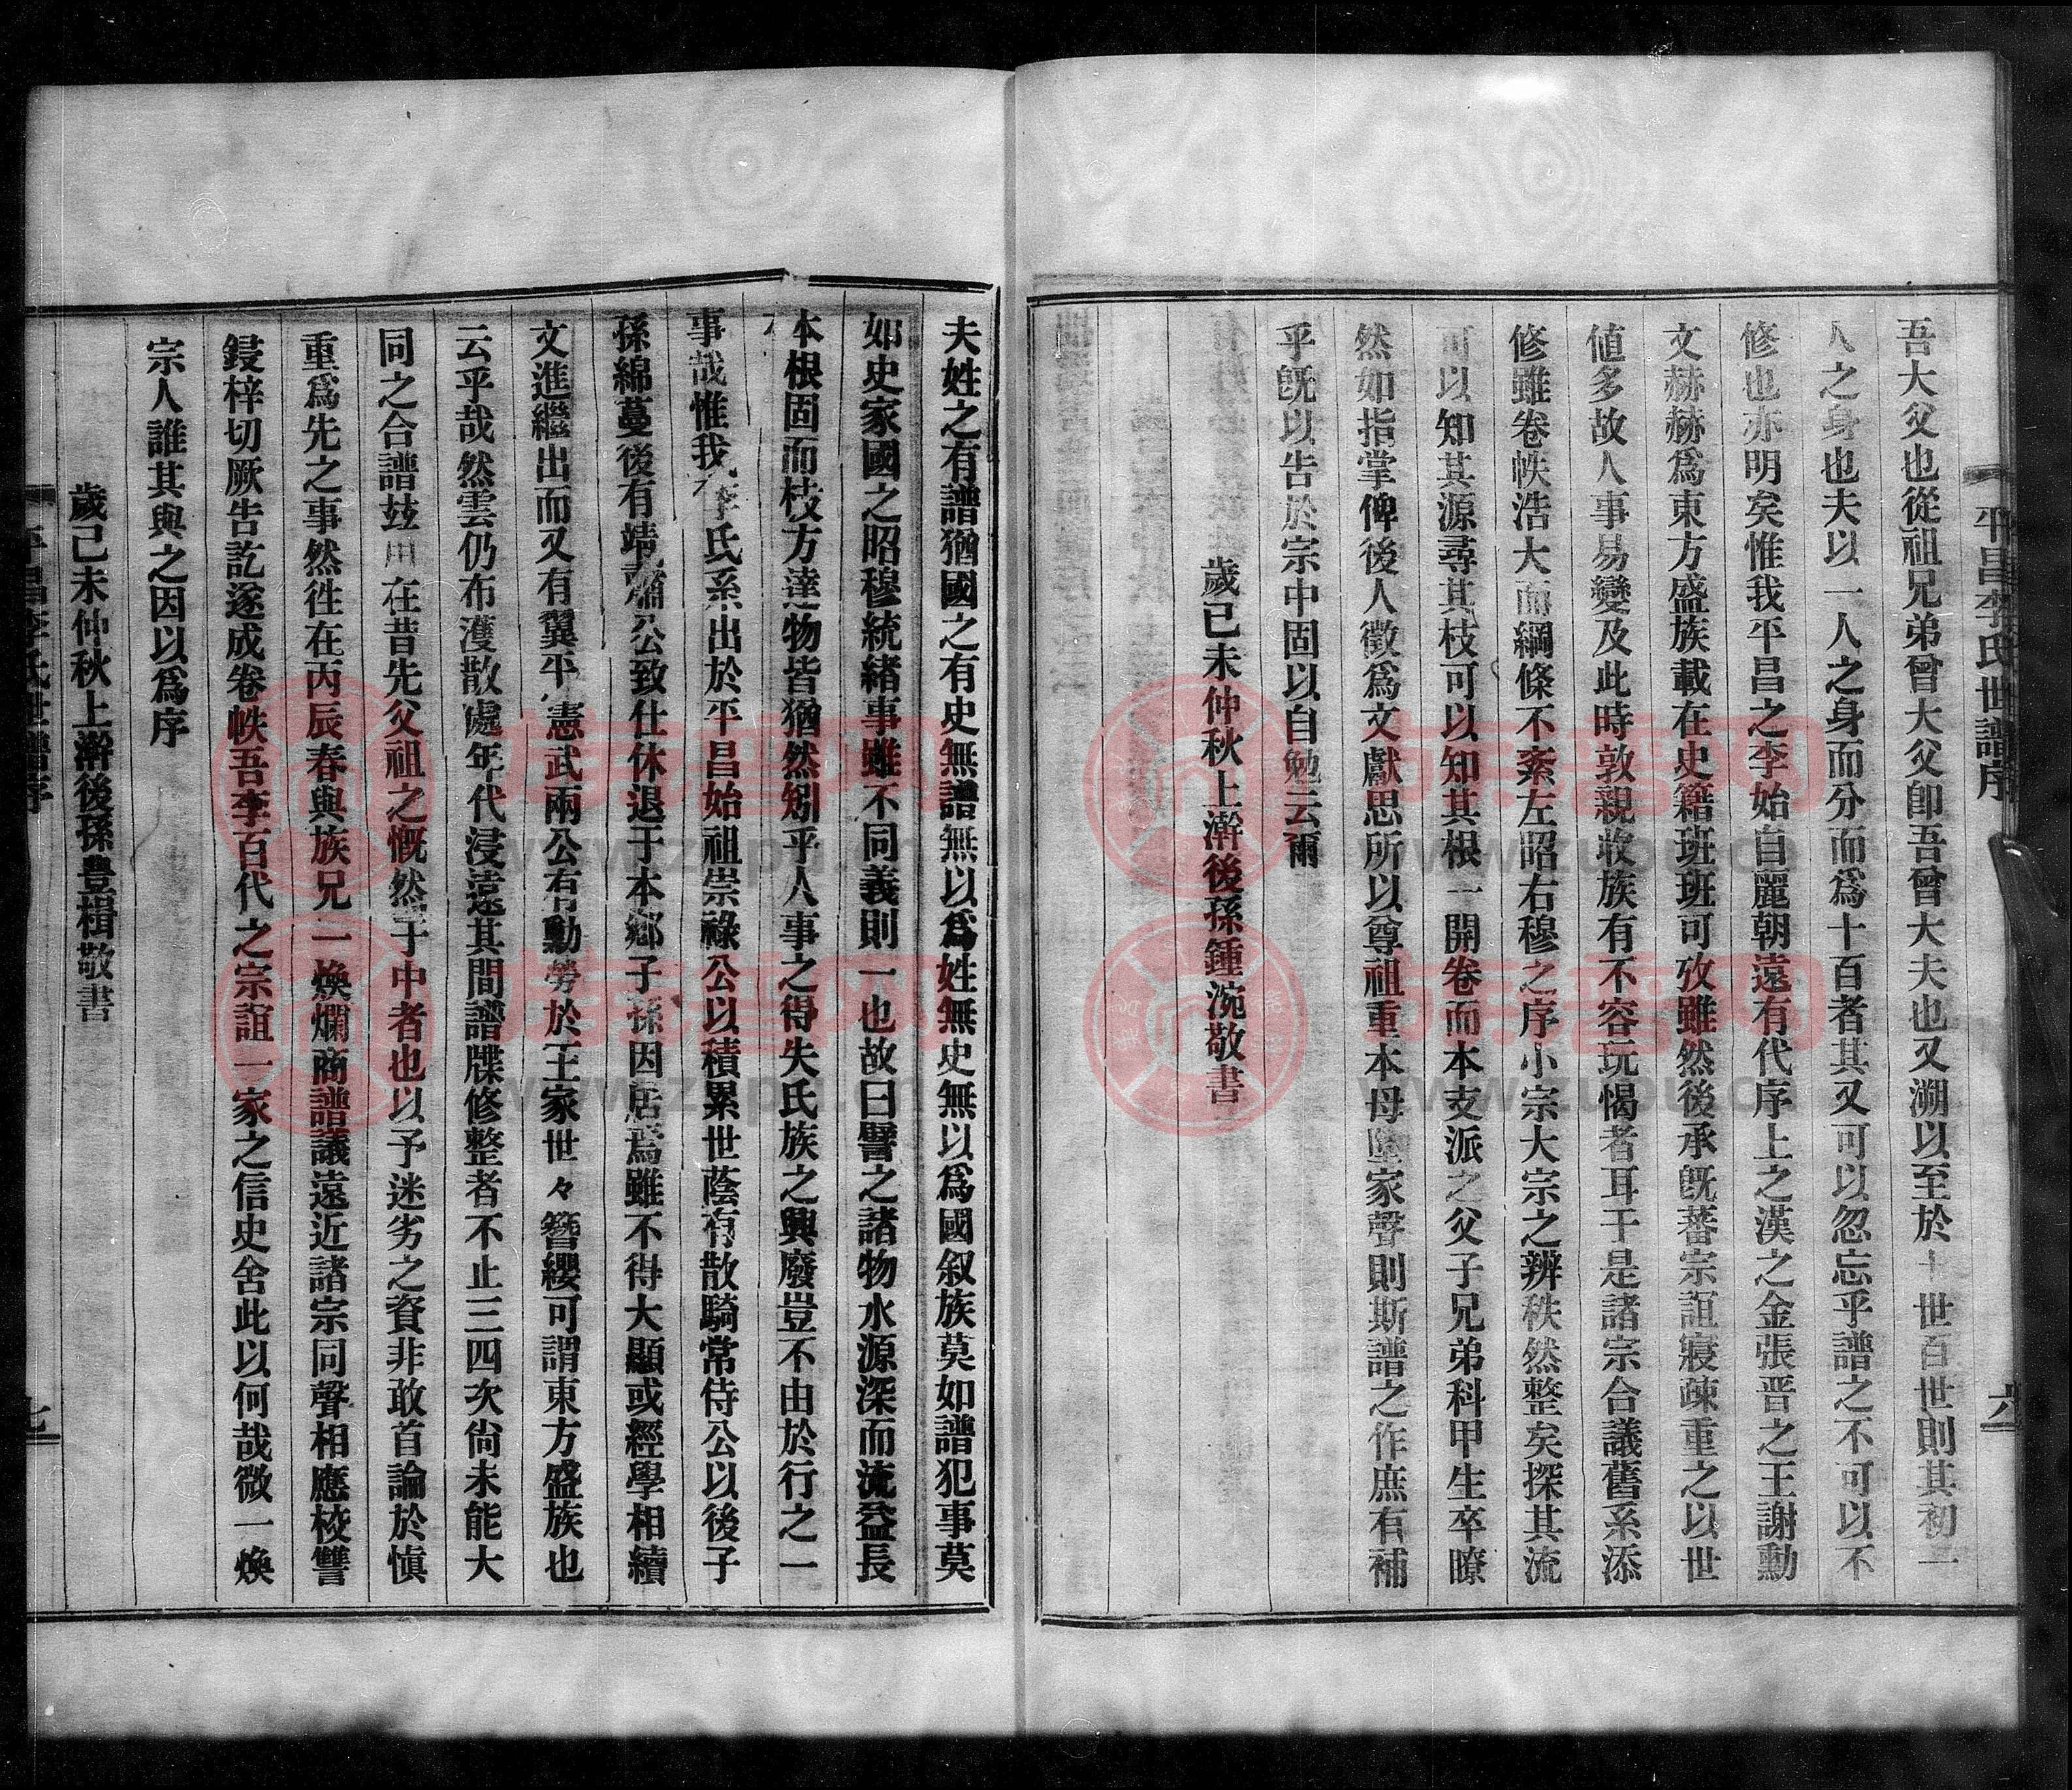 平昌李氏世譜序
六
吾大父也從祖兄弟曾大父卽吾曾大夫也又溯以至於十世百世則其初一
人之身也夫以一人之身而分而爲十百者其又可以忽忘乎譜之不可以不
修也亦明矣惟我平昌之李始自麗朝遠有代序上之漢之金張晋之王謝勳
文赫赫爲東方盛族載在史籍班班可攷雖然後承旣蕃宗誼寢疎重之以世
値多故人事易變及此時敦親收族有不容玩愒者耳于是諸宗合議舊系添
修雖卷帙浩大而綱條不紊左昭右穆之序小宗大宗之辨秩然整矣探其流
可以知其源尋其枝可以知其根一開卷而本支派之父子兄弟科甲生卒瞭
然如指掌俾後人徵爲文獻思所以尊祖重本毋墜家聲則斯譜之作庶有補
乎旣以告於宗中固以自勉云爾
歲已未仲秋上澣後孫鍾涴敬書
夫姓之有譜猶國之有史無譜無以爲姓無史無以爲國叙族莫如譜犯事莫
如史家國之昭穆統緒事雖不同義則一也故曰譬之諸物水源深而流益長
本根固而枝方達物皆猶然矧乎人事之得失氏族之興廢豈不由於行之一
事哉惟我李氏系出於平昌始祖崇祿公以積累世蔭有散騎常侍公以後子
孫綿蔓後有靖肅公致仕休退于本鄕子孫因居焉雖不得大顯或經學相續
文進繼出而又有翼平憲武兩公有勳勞於王家世々簪纓可謂東方盛族也
云乎哉然雲仍布濩散處年代浸遠其間譜牒修整者不止三四次尙未能大
同之合譜玆用在昔先父祖之慨然于中者也以予迷劣之資非敢首論於愼
重爲先之事然徃在丙辰春與族兄一煥爛商譜議遠近諸宗同聲相應校讐
鋟梓切厥告訖遂成卷帙吾李百代之宗誼一家之信史舍此以何哉微一煥
宗人誰其與之因以爲序
歲己未仲秋上澣後孫豊楫敬書
平昌李氏世譜序
七